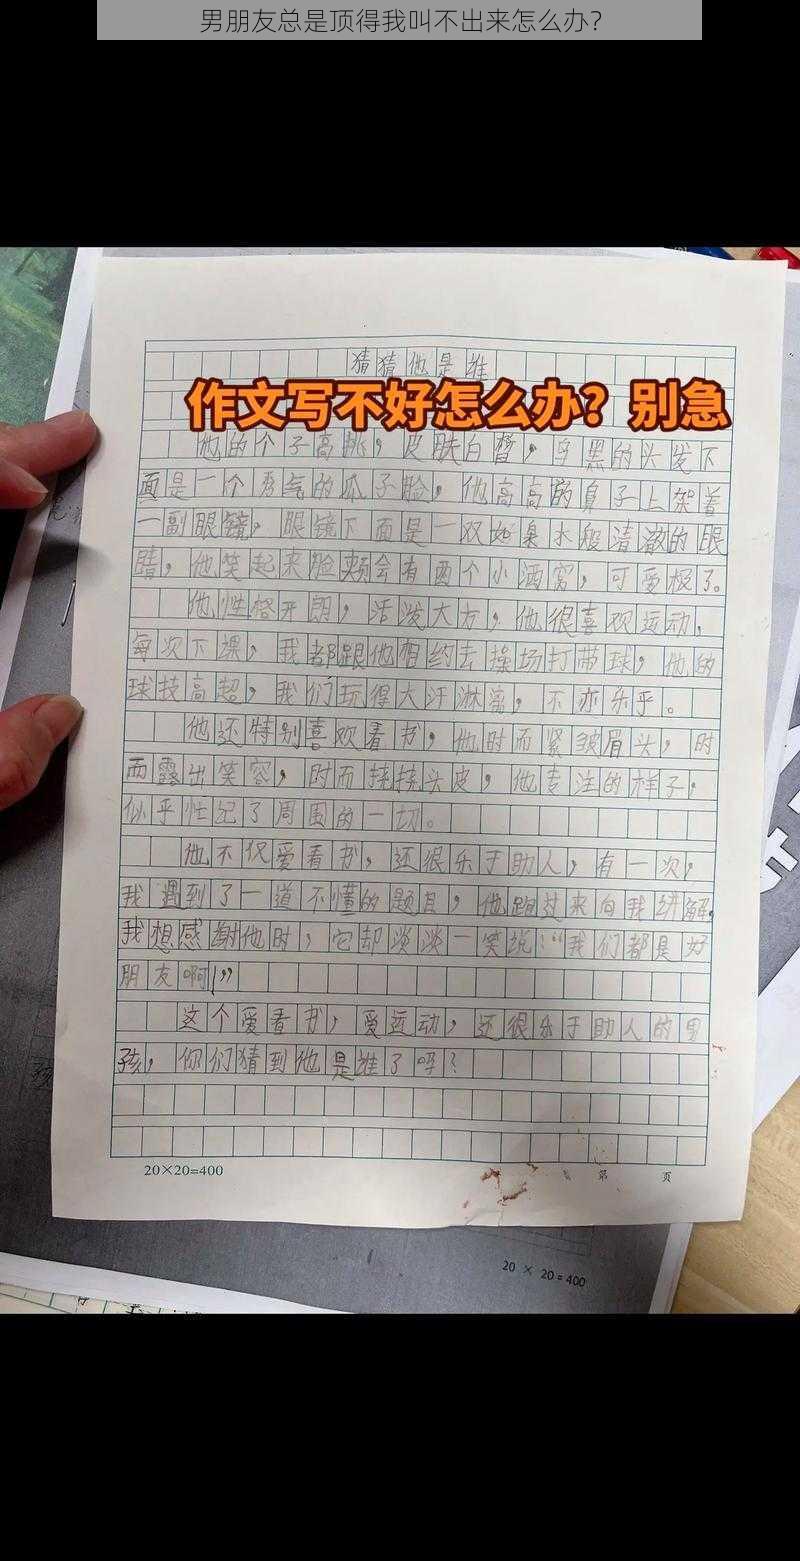 男朋友总是顶得我叫不出来怎么办?
猜猜他是谁
作文写不好怎么办?别急
他的个子高挑，皮肤白皙，乌黑的头发下
面是一个秀气的瓜子脸，他高高的身子上架着
一副眼镜，眼镜下面是一双如泉水般清澈的眼
睛，他笑起来脸颊会有两个小酒窝，可爱极了。
他性格开朗，活泼大方，他很喜欢运动，
每次下课，我都跟他相约去操场打带球，他的
球技高超，我们玩得大汗淋漓，不亦乐乎。
他还特别喜欢看书，他时而紧皱眉头，时
而露出笑容，时而挠挠头皮，他专注的样子，
似乎忘记了周围的一切。
他不仅爱看书，还很乐于助人，有一次，
我遇到了一道不懂的题目，他跑过来向我讲解，
我想感谢他时，它却淡淡一笑说：“我们都是好
朋友啊！”
这个爱看书，爱运动，还很乐于助人的男
孩，你们猜到他是谁了吗？
20×20=400
第 页
20 × 20 = 400